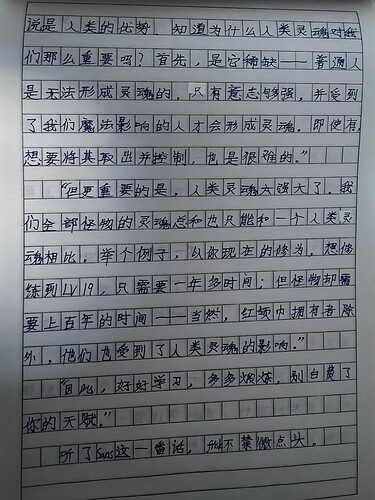 说是人类的优势。知道为什么人类灵魂对我
们那么重要吗？首先，是它稀缺——普通人
是无法形成灵魂的，只有意志够强，并受到
了我们魔法影响的人才会形成灵魂。即使有，
想要将其取出并控制，也是很难的。”
“但更重要的是，人类灵魂太强大了。我
们全部怪物的灵魂总和也只能和一个人类灵
魂相比。举个例子，以你现在的修为，想修
练到LV19，只需要一年多时间；但怪物却需
要上百年的时间——当然，红领巾拥有者除
外，他们有受到了人类灵魂的影响。”
“因此，好好学习，多多锻炼，别白费了
你的天赋。”
听了Sans这一番话，不禁微点头。